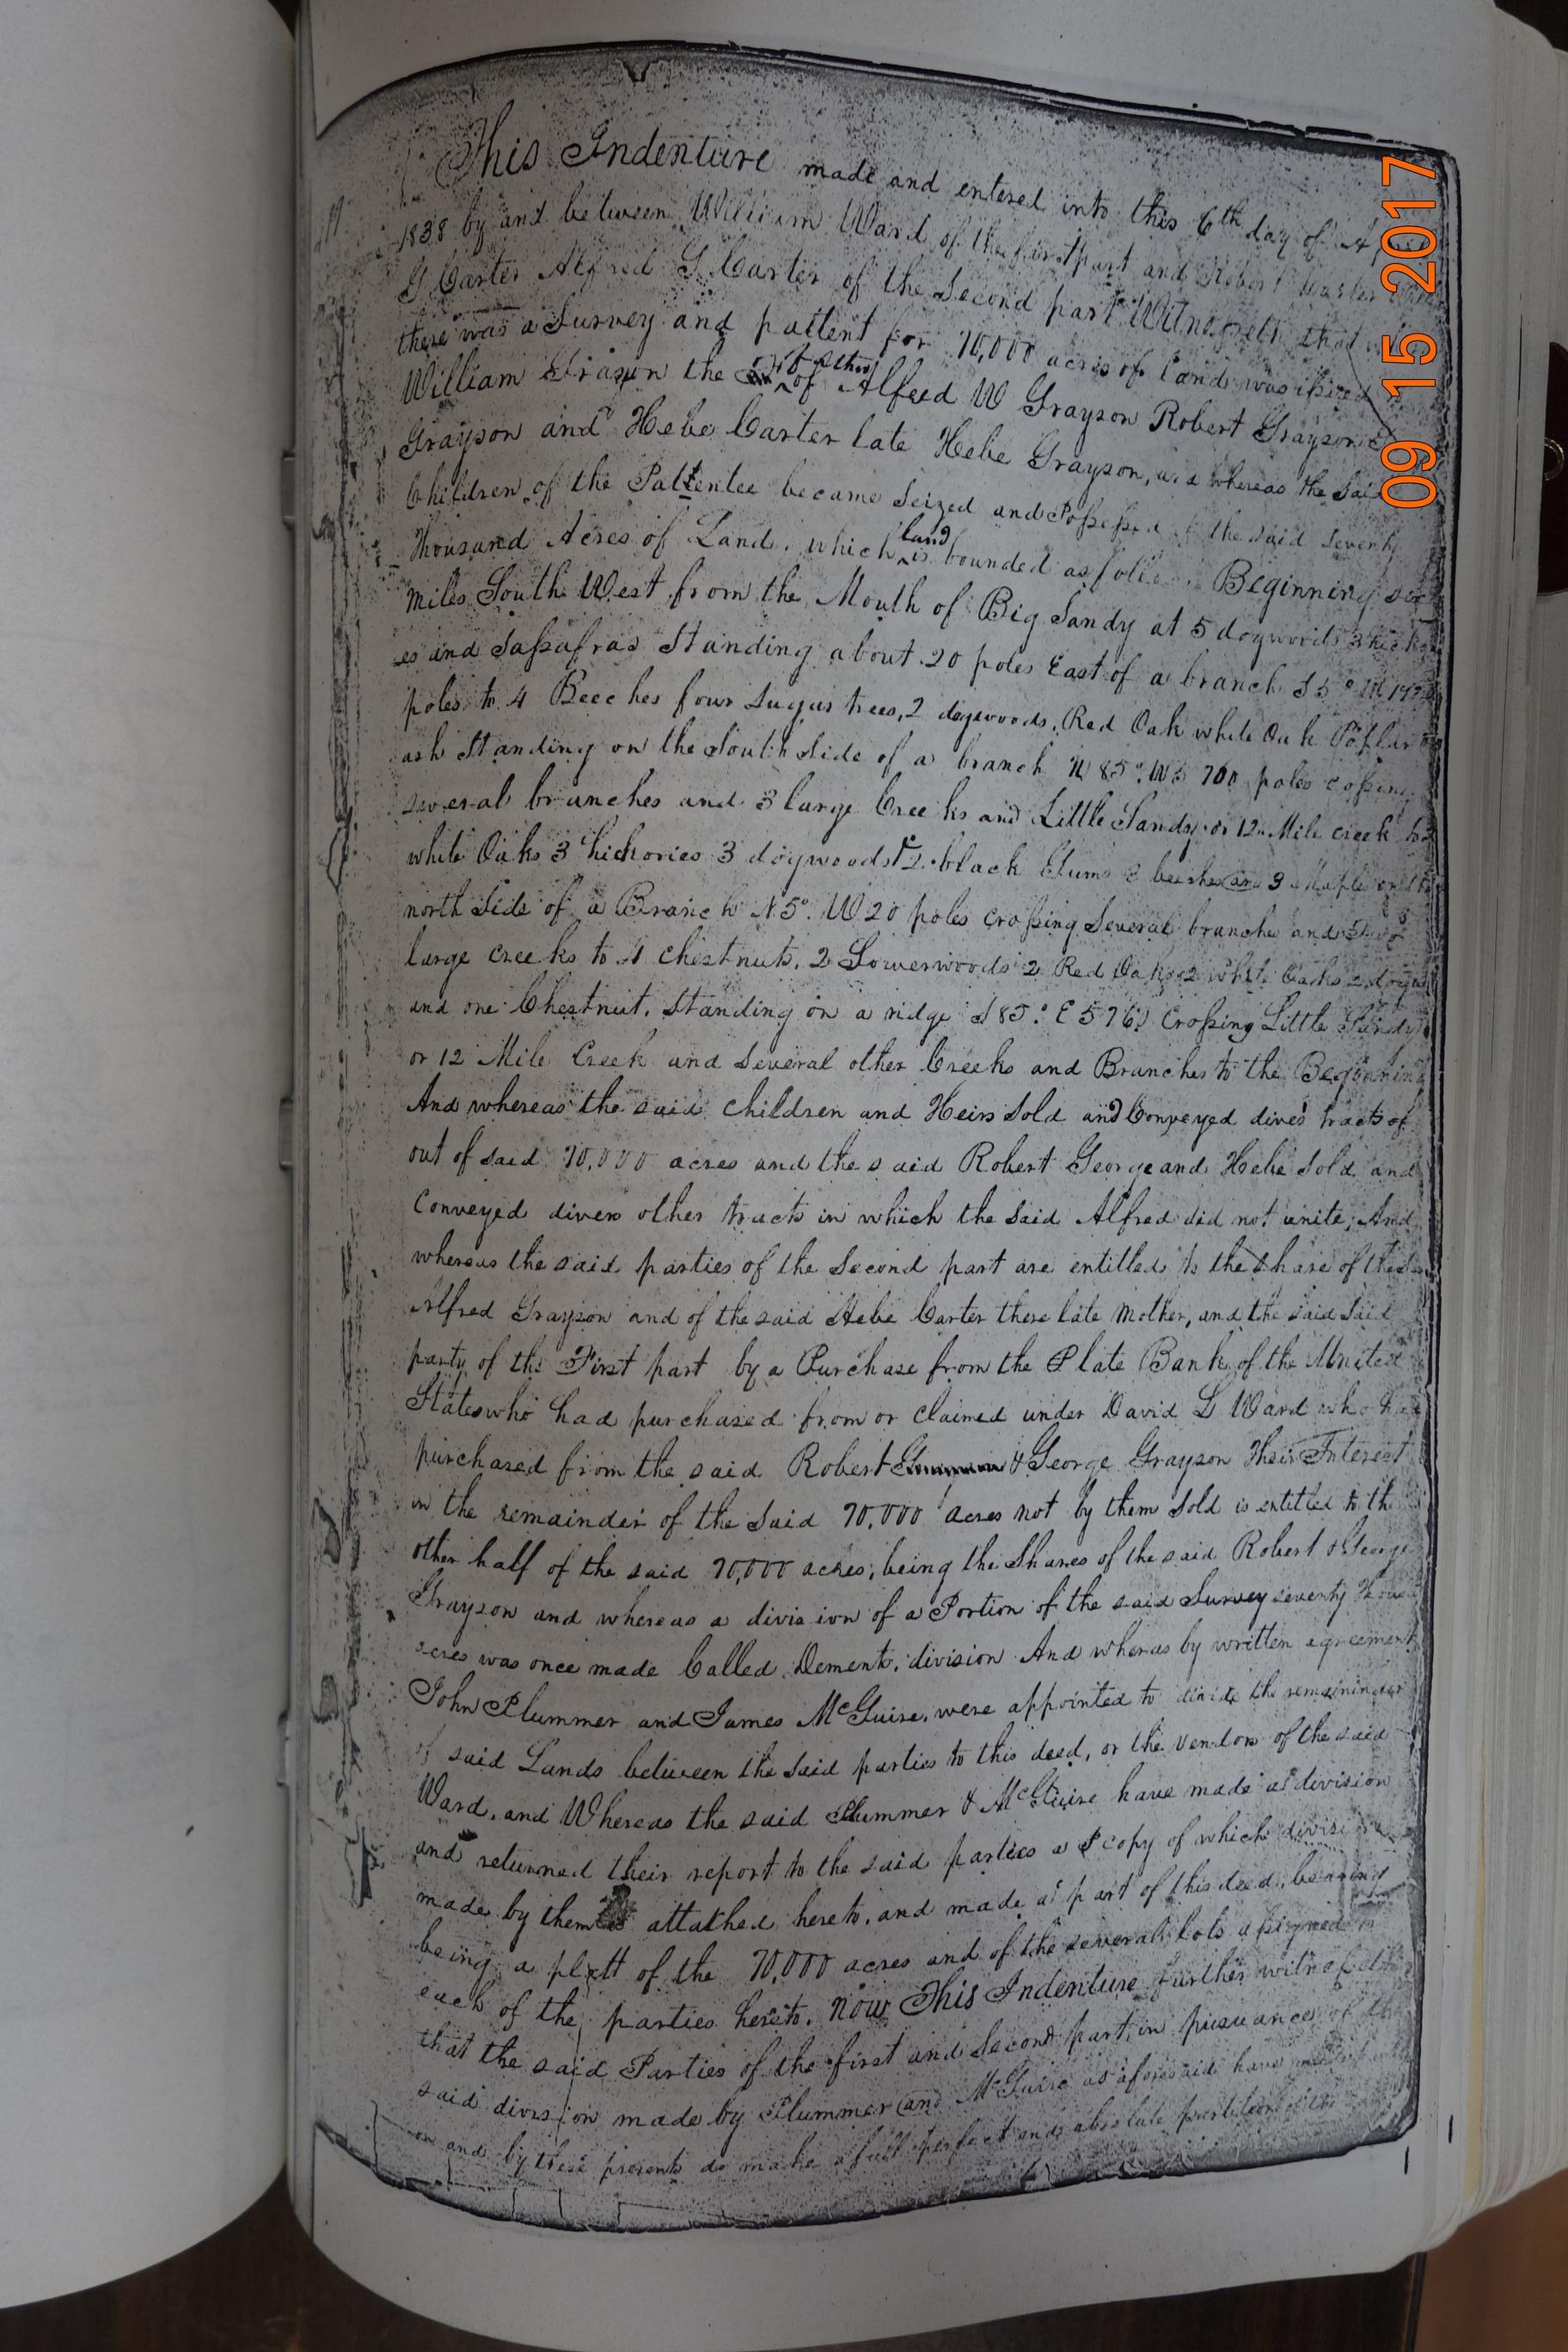 This Indenture made and entered into this 6th day of
1838 by and between William Ward of the first part and Robert Carter
G Carter Alfred G Carter of the Second part Witnesseth that
there was a Survey and pattent for 70,000 acres of land was issued
William Grayson the father of Alfred W Grayson Robert Grayson
Grayson and Hebe Carter late Hebe Grayson, and whereas the Said
Children of the Pattentee became Seized and Possessed of the said Seventy
Thousand Acres of Land, which land is bounded as Beginning six
Miles South West from the Mouth of Big Sandy at 5 dogwoods 3
es and Sassafras Standing about 20 poles East of a branch S 5° W
poles to 4 Beeches four Sugar trees, 2 dogwoods, Red Oak white Oak Poplar
ash Standing on the South Side of a branch N 85° W 5 700 poles cossing
several branches and 3 large Creeks and Little Sandy or 12 Mile creek to
white Oaks 3 hickories 3 dogwoods 2 black Gums beeches and 3 Maple on the
north Side of a Branch N 5° W 20 poles crossing Several branches and Two
large creeks to 4 chestnuts, 2 Sowerwoods 2 Red Oaks 2 white Oaks 2
and one Chestnut, Standing on a ridge S 85° E 5760 Crossing Little Sandy
or 12 Mile Creek and Several other Creeks and Branches to the Beginning
And whereas the said children and Heirs Sold and Conveyed divers tracts of
out of said 70,000 acres and the said Robert George and Hebe Sold and
Conveyed divers other tracts in which the Said Alfred did not unite, And
whereas the said parties of the Second part are entitled to the Share of the
Alfred Grayson and of the said Hebe Carter there late Mother, and the said Said
party of the First part by a Purchase from the Plate Bank of the United
States who had purchased from or claimed under David L Ward who
purchased from the said Robert & George Grayson Their Interest
in the remainder of the Said 70,000 acres not by them Sold is entitled to the
other half of the said 70,000 acres, being the Shares of the said Robert & George
Grayson and whereas a division of a Portion of the said Survey seventy
acres was once made Called Dements, division And whereas by written agreement
John Plummer and James McGuire, were appointed to divide the remainder
of said Lands between the Said parties to this deed, or the vendors of the said
Ward, and Whereas the said Plummer & McGuire have made a division
and returned their report to the said parties a copy of which division
made by them is attatched hereto, and made a part of this deed, bearing
being a platt of the 70,000 acres and of the several lots assigned
each of the parties hereto. Now This Indenture further witnesseth
that the said Parties of the first and Second part, in pursuance of the
said division made by Plummer and McGuire as aforesaid have
and by these presents do make a full perfect and absolute partition of the
09 15 2017